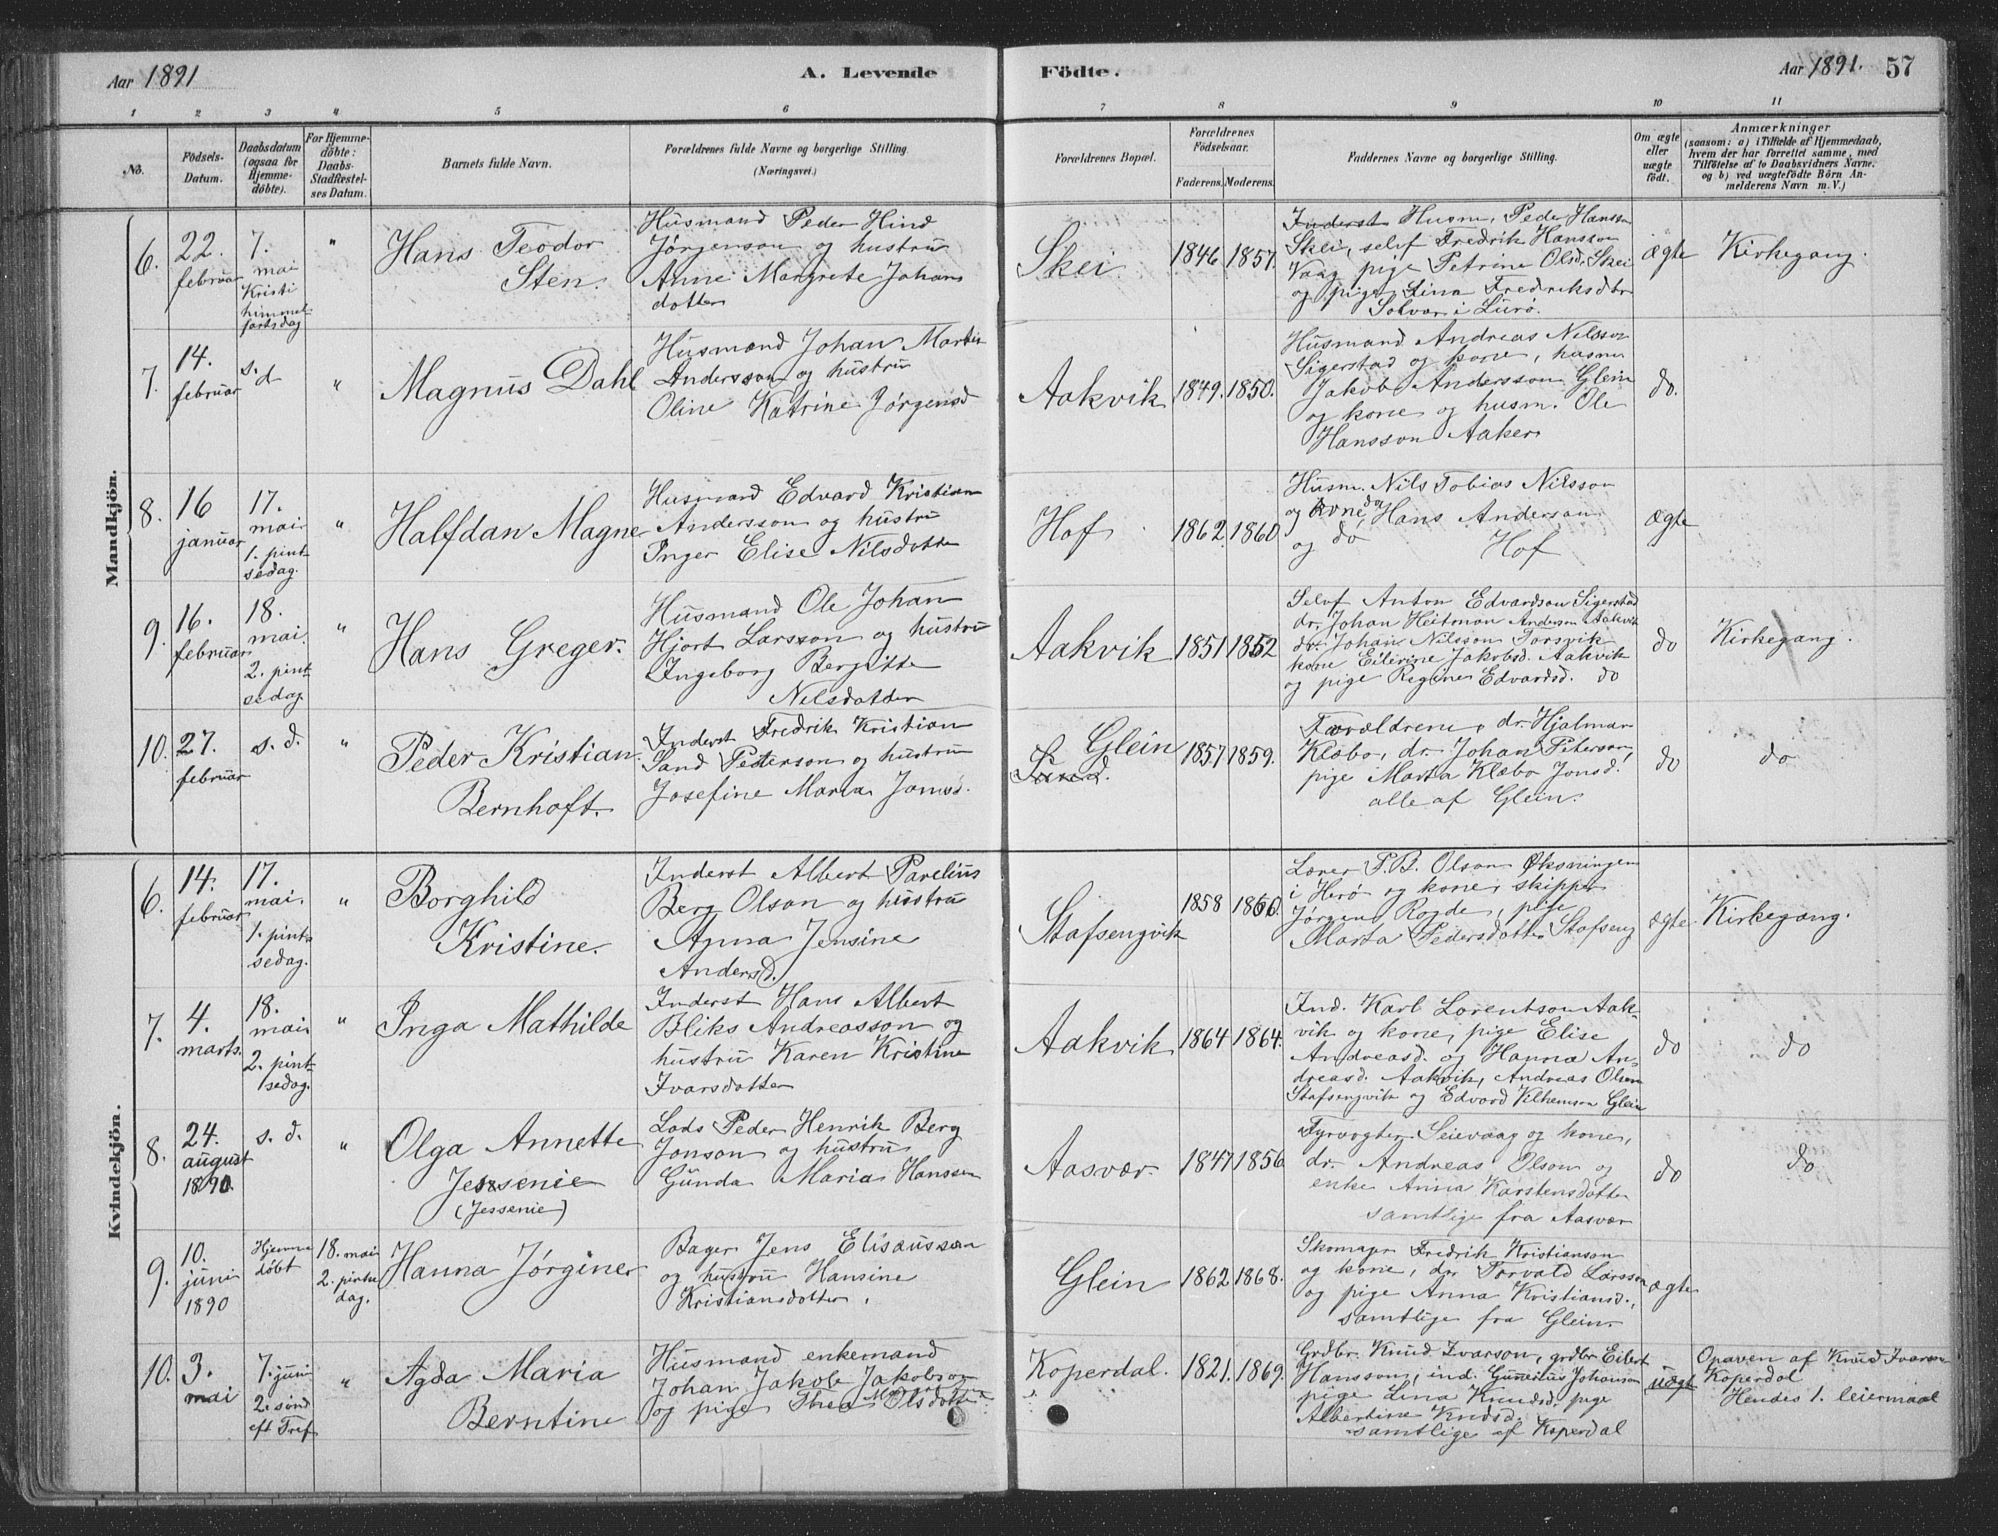 Aar 1891
A. Levende
Födte.
Aar 1891.
57
1 2 3 4 5 6 7 8 9 10 11
No.
Födsels-
Datum.
Daabsdatum
(ogsaa for
Hjemme-
döbte).
For Hjemme-
döbte:
Daabs-
Stadfæstel-
ses Datum.
Barnets fulde Navn.
Forældrenes fulde Navne og borgerlige Stilling.
(Næringsvei.)
Forældrenes Bopæl.
Forældrenes
Födselsaar.
Faderens. Moderens.
Faddernes Navne og borgerlige Stilling.
Om ægte
eller
uægte
födt.
Anmærkninger
(saasom: a) i Tilfælde af Hjemmedaab,
hvem der har forrettet samme, med
Tilföielse af to Daabsvidners Navne.
og b) ved uægtefödte Börn An-
melderens Navn m. V.)
Mandkjön.
6.
22.
februar
7.
mai
Kristi
himmel-
fartsdag
"
Hans Teodor
Sten.
Husmand Peder Hind
Jørgenson og hustru
Anne Margrete Johans
dotter
Skei.
1846 1857.
Inderst Husm. Peder Hansson
Skei, selvf Fredrik Hansson
Vaag pige Petrine Olsd. Skei
og pige Lina Fredriksdtr
Solvær i Lurø.
ægte
Kirkegang.
7.
14.
februar
s. d
"
Magnus Dahl
Husmand Johan Martin
Andersson og hustru
Oline Katrine Jørgensd
Aakvik
1849. 1850.
Husmand Andreas Nilsson
Sigerstad og kone, husm.
Jakob Andersson Glein
og kone og husm. Ole
Hansson Aaker
do.
8.
16
januar
17.
mai
1. pint
sedag.
"
Halfdan Magne
Husmand Edvard Kristian
Andersson og hustru
Inger Elise Nilsdotter
Hof
1862. 1860
Husm. Nils Tobias Nilsson
og kone, do Hans Anderson
og do Hof
ægte
9.
16.
februar
18.
mai
2. pint
sedag.
"
Hans Greger.
Husmand Ole Johan
Hjort Larsson og hustru
Ingeborg Bergitte
Nilsdotter
Aakvik
1851 1852
Selvf Anton Edvardson Sigerstad
dr. Johan Heitman Anderson Aakvik
dr. Johan Nilsson Torsvik
kone Eilerine Jakobsd. Aakvik
og pige Regine Edvardsd. do
do
Kirkegang.
10.
27.
februar
s. d.
"
Peder Kristian
Bernhoft.
Inderst Fredrik Kristian
Sand Pederson og hustru
Josefine Maria Jonsd.
Glein
Sand.
1857 1859.
Forældrene, dr. Hjalmar
Klæbo, dr. Johan Peterson,
pige Marta Klæbo Jonsd.
alle af Glein.
do
do
Kvindekjön.
6.
14.
februar
17.
mai.
1. pint
sedag.
"
Borghild
Kristine.
Inderst Albert Parelius
Berg Olson og hustru
Anna Jensine
Andersd.
Stafsengvik
1858 1860.
Lærer P. B. Olson Øksningen
i Herø og kone, skipper
Jørgen Rogde, pige
Marta Pedersdotter Stafseng
ægte
Kirkegang.
7.
4.
marts.
18.
mai
2. pint
sedag.
"
Inga Mathilde
Inderst Hans Albert
Bliks Andreasson og
hustru Karen Kristine
Ivarsdotter
Aakvik
1864 1864.
Ind. Karl Lorentson Aak-
vik og kone, pige Elise
Andreasd. og Hanna An-
dreasd. Aakvik, Andreas Olsen
Stafsengvik og Edvard Vilhemson Glein
do
do
8.
24.
august
1890.
s. d.
"
Olga Annette
Jessenie
(Jessenie)
Lods Peder Henrik Berg
Jonson og hustru
Gunda Maria Hanssen
Aasvær.
1847 1856
Fyrvogter Seievaag og kone,
dr. Andreas Olson og
enke Anna Karstensdotter
samtlige fra Aasvær
do
do
9.
10.
juni
1890
Hjemme
døbt
18. mai
2. pintse
dag.
Hanna Jørgine
Bager Jens Elisæusson
og hustru Hansine
Kristiansdotter.
Glein
1862 1868.
Skomager Fredrik Kristianson
og kone, dr Torvald Larsson
og pige Anna Kristiansd.,
samtlige fra Glein.
ægte
10.
3.
mai
7. juni
2. sønd
eft Tref
"
Agda Maria
Berntine
Husmand enkemand
Johan Jakob Jakobson
og pige Thea M. Olsdotter
Koperdal.
1821. 1869.
Grdbr. Knud Ivarson, grdbr Eilert
Hansson, ind. Gunerius Johanson
pige Lina Knudsd. pige
Albertine Knudsd.
samtlige af Koperdal
uægte
Opgaven af Knud Ivarson
Koperdal
Hendes 1. leiermaal